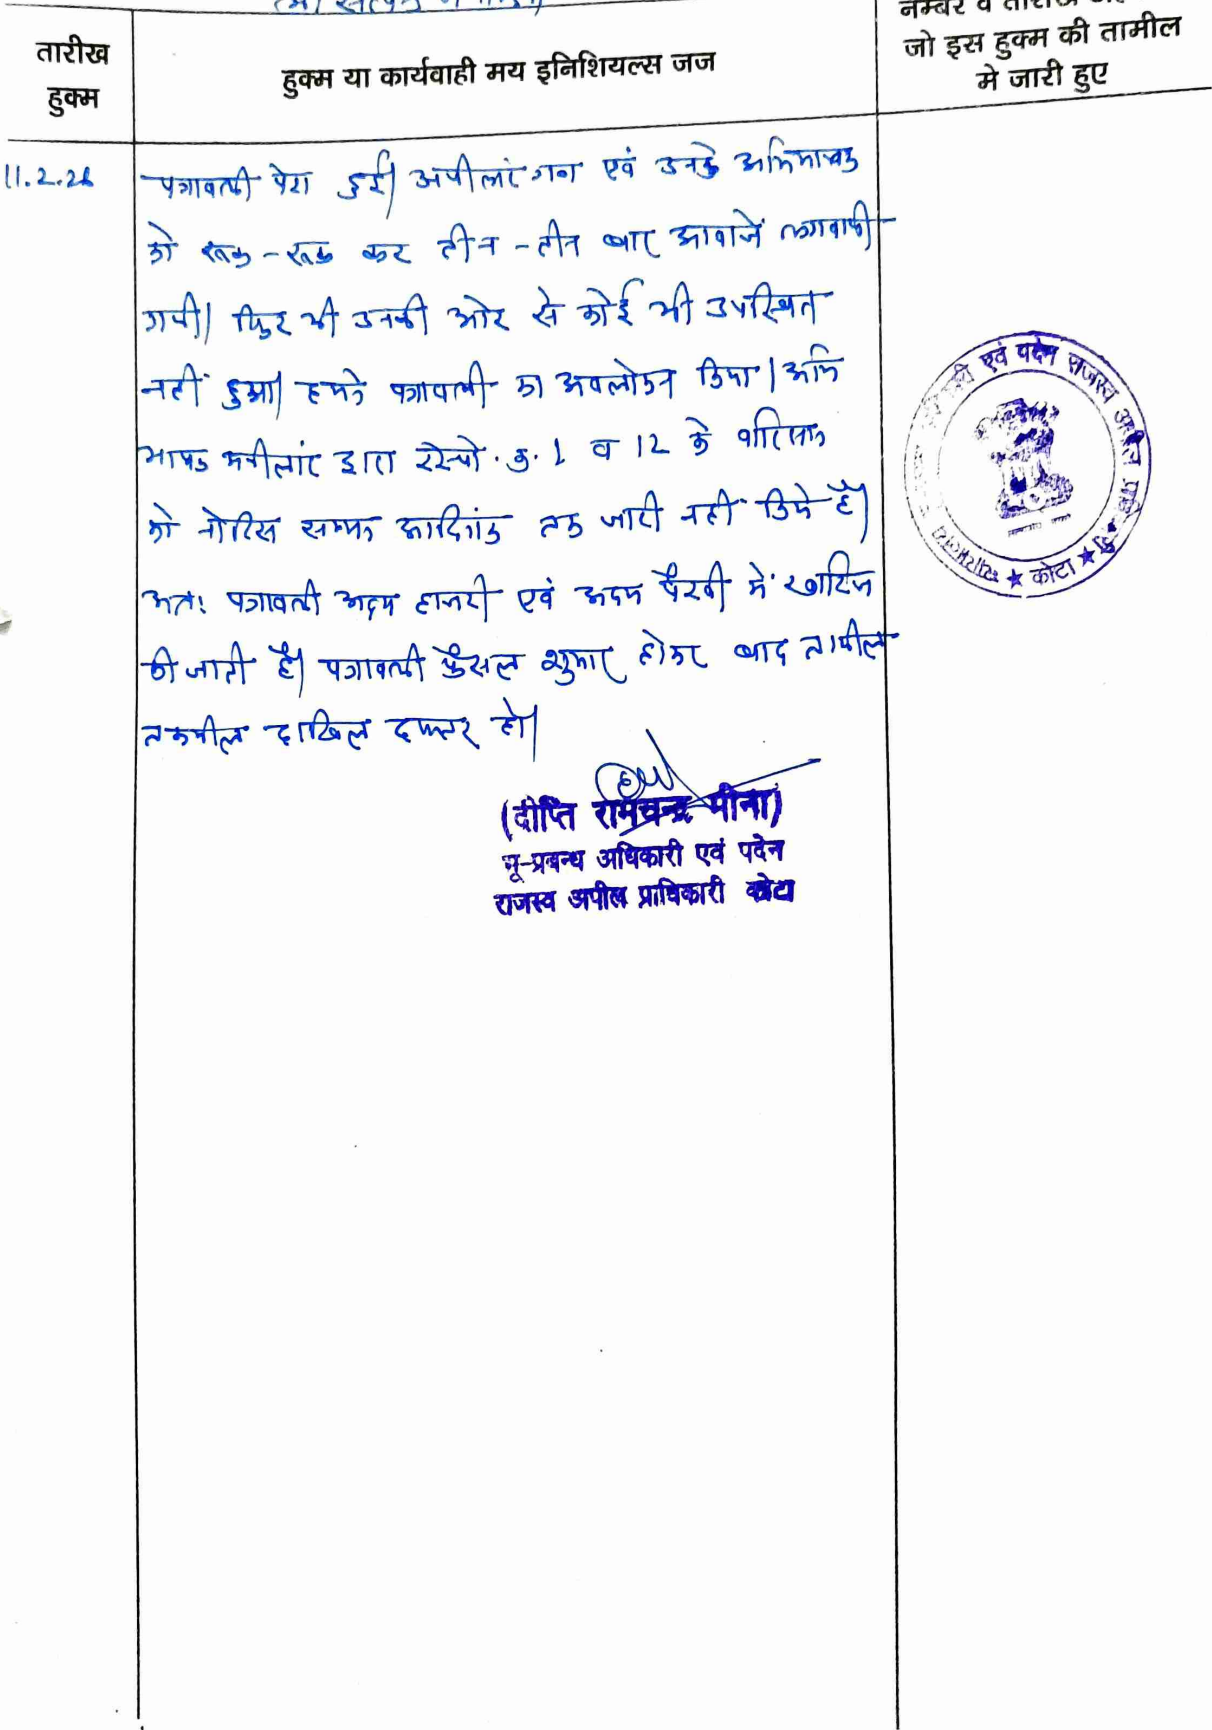 तारीख
हुक्म
हुक्म या कार्यवाही मय इनिशियल्स जज
नम्बर व तारीख
जो इस हुक्म की तामील
मे जारी हुए
11.2.26
पत्रावली पेश हुई। अपीलांटगन एवं उनके अभिभाषक
को रूक-रूक कर तीन-तीन बार आवाजें लगवायी
गयी। फिर भी उनकी ओर से कोई भी उपस्थित
नहीं हुआ। हमने पत्रावली का अवलोकन किया। अभि
भाषक अपीलांट द्वारा रेस्पो. क्र. 1 व 12 के वारिसान
को नोटिस सम्मन आदिनांक तक जारी नहीं किये है।
अतः पत्रावली अदम हाजरी एवं अदम पैरवी में खारिज
की जाती है। पत्रावली फैसल शुमार होकर बाद तामील
तकमील दाखिल दफ्तर हो।
(दीप्ति रामचन्द्र मीना)
भू-प्रबन्ध अधिकारी एवं पदेन
राजस्व अपील प्राधिकारी कोटा
एवं पदेन राजस्व अपील
★ कोटा ★